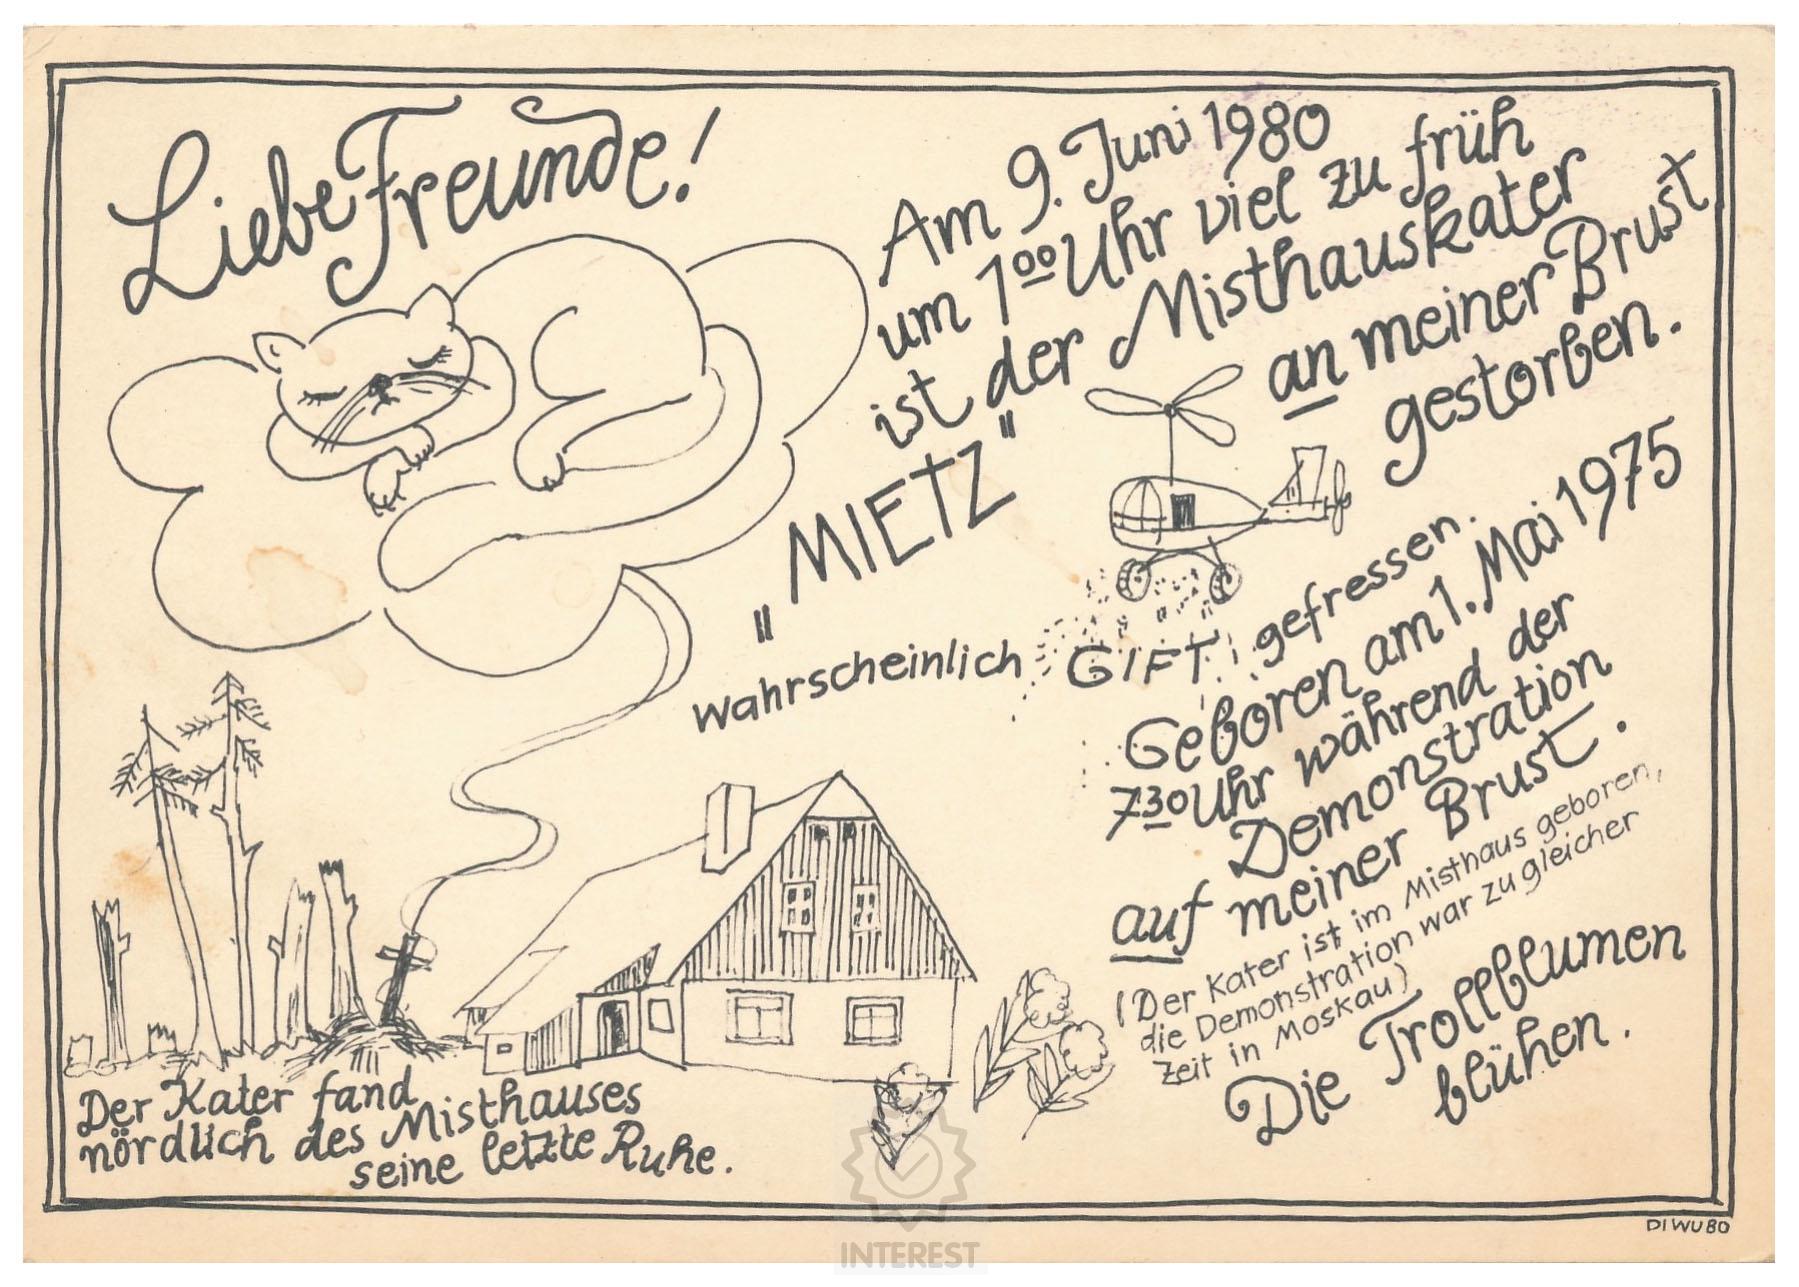 Liebe Freunde!
Am 9. Juni 1980
um 1⁰⁰ Uhr viel zu früh
ist der Misthauskater
"MIETZ"
an meiner Brust
gestorben.
wahrscheinlich GIFT gefressen.
Geboren am 1. Mai 1975
7³⁰ Uhr während der
Demonstration
auf meiner Brust.
(Der Kater ist im Misthaus geboren,
die Demonstration war zu gleicher
Zeit in Moskau)
Die Trollblumen
blühen.
Der Kater fand
nördlich des Misthauses
seine letzte Ruhe.
DIWU80
INTEREST